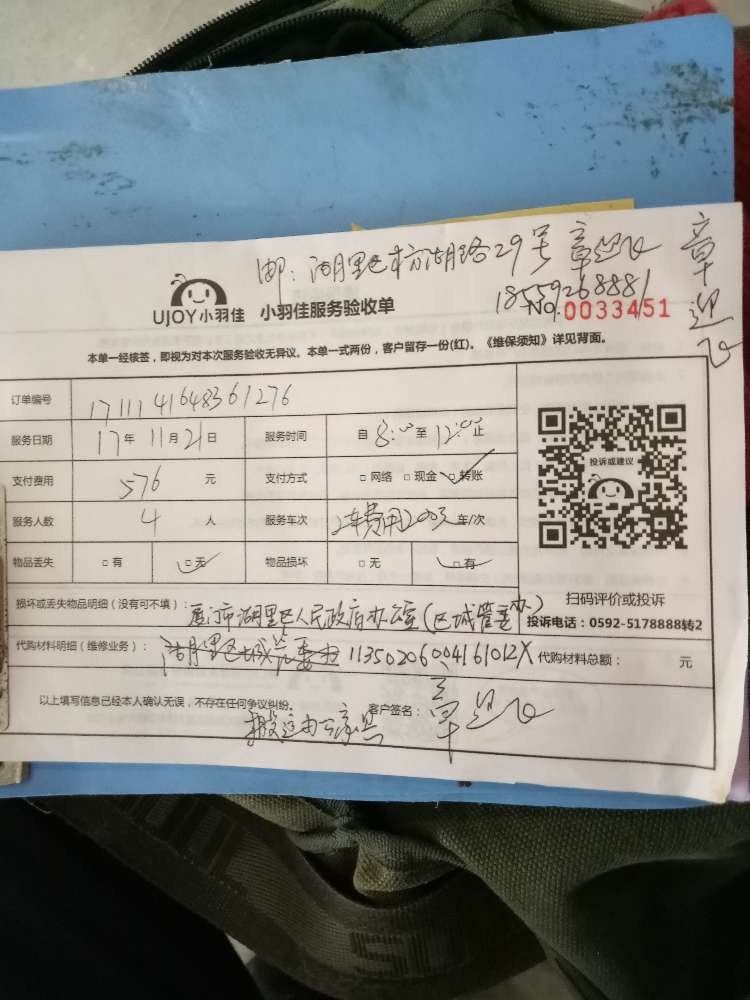 邮：湖里区枋湖路29号 章迎
章迎
18559268881
UJOY小羽佳 小羽佳服务验收单
No.0033451
本单一经核签，即视为对本次服务验收无异议。本单一式两份，客户留存一份(红)。《维保须知》详见背面。
订单编号 1711141648361276
服务日期 17年 11月21日 服务时间 自 8:00 至 12:00 止
支付费用 576 元 支付方式 □ 网络 □ 现金 □ 转账
服务人数 4 人 服务车次 车费用200元 车/次
物品丢失 □ 有 □ 无 物品损坏 □ 无 □ 有
投诉或建议
扫码评价或投诉
投诉电话：0592-5178888转2
损坏或丢失物品明细（没有可不填）：厦门市湖里区人民政府办公室(区城管办)
代购材料明细（维修业务）：湖里区城 11350206004161012X 代购材料总额： 元
以上填写信息已经本人确认无误，不存在任何争议纠纷。 客户签名：章迎
搬运办公家具